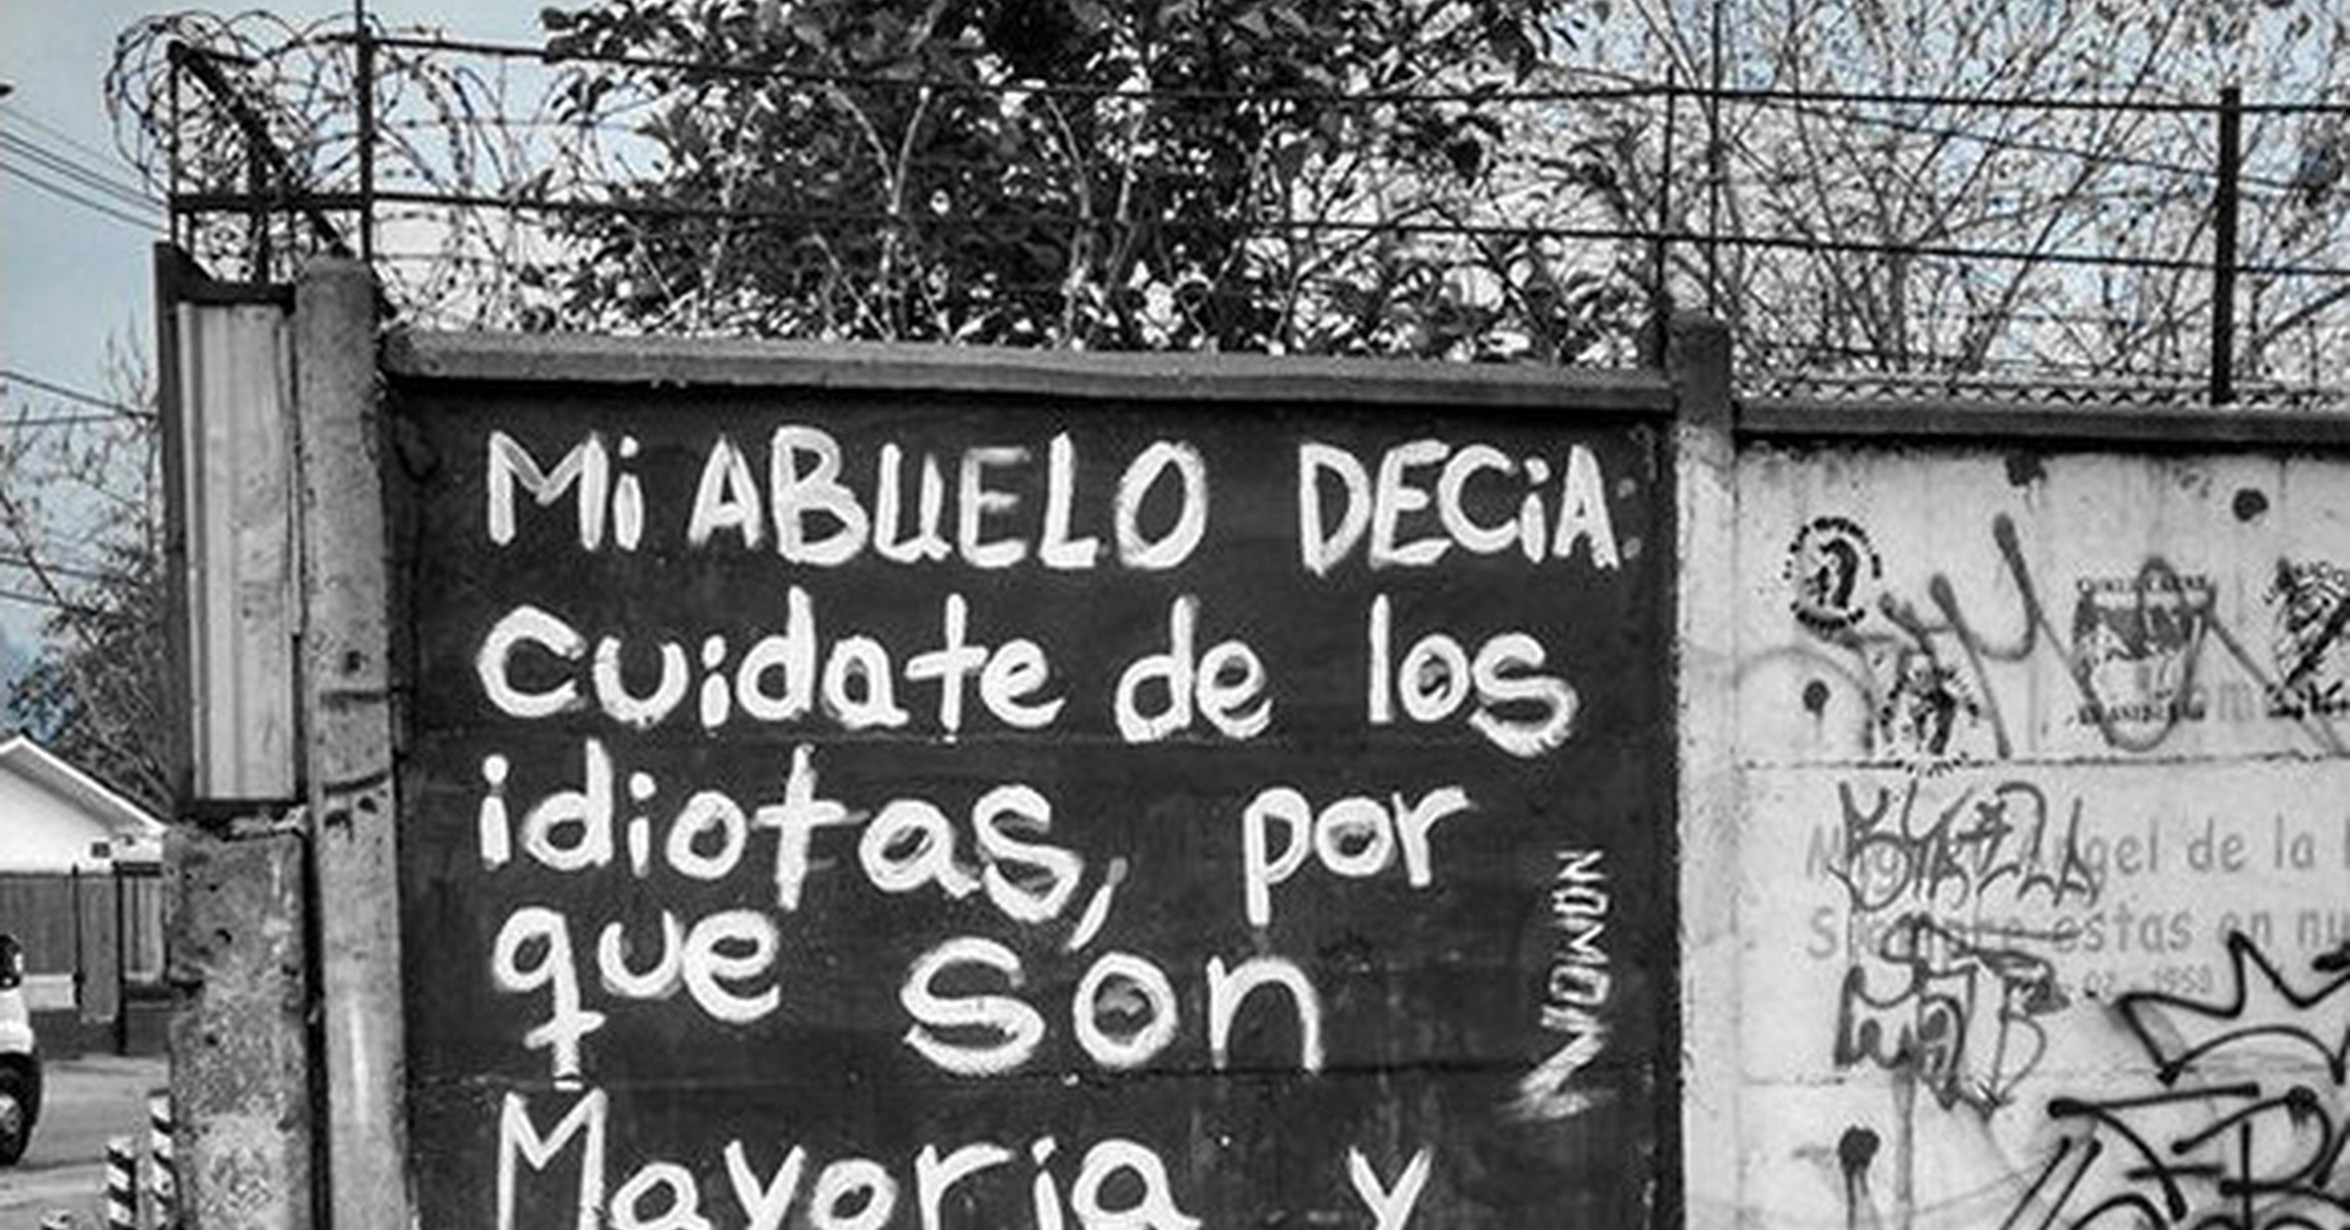 Mi ABUELO DECiA:
cuidate de los
idiotas, por
que son
Mayoria y
NOMON
gel de la
estas en nu
1959